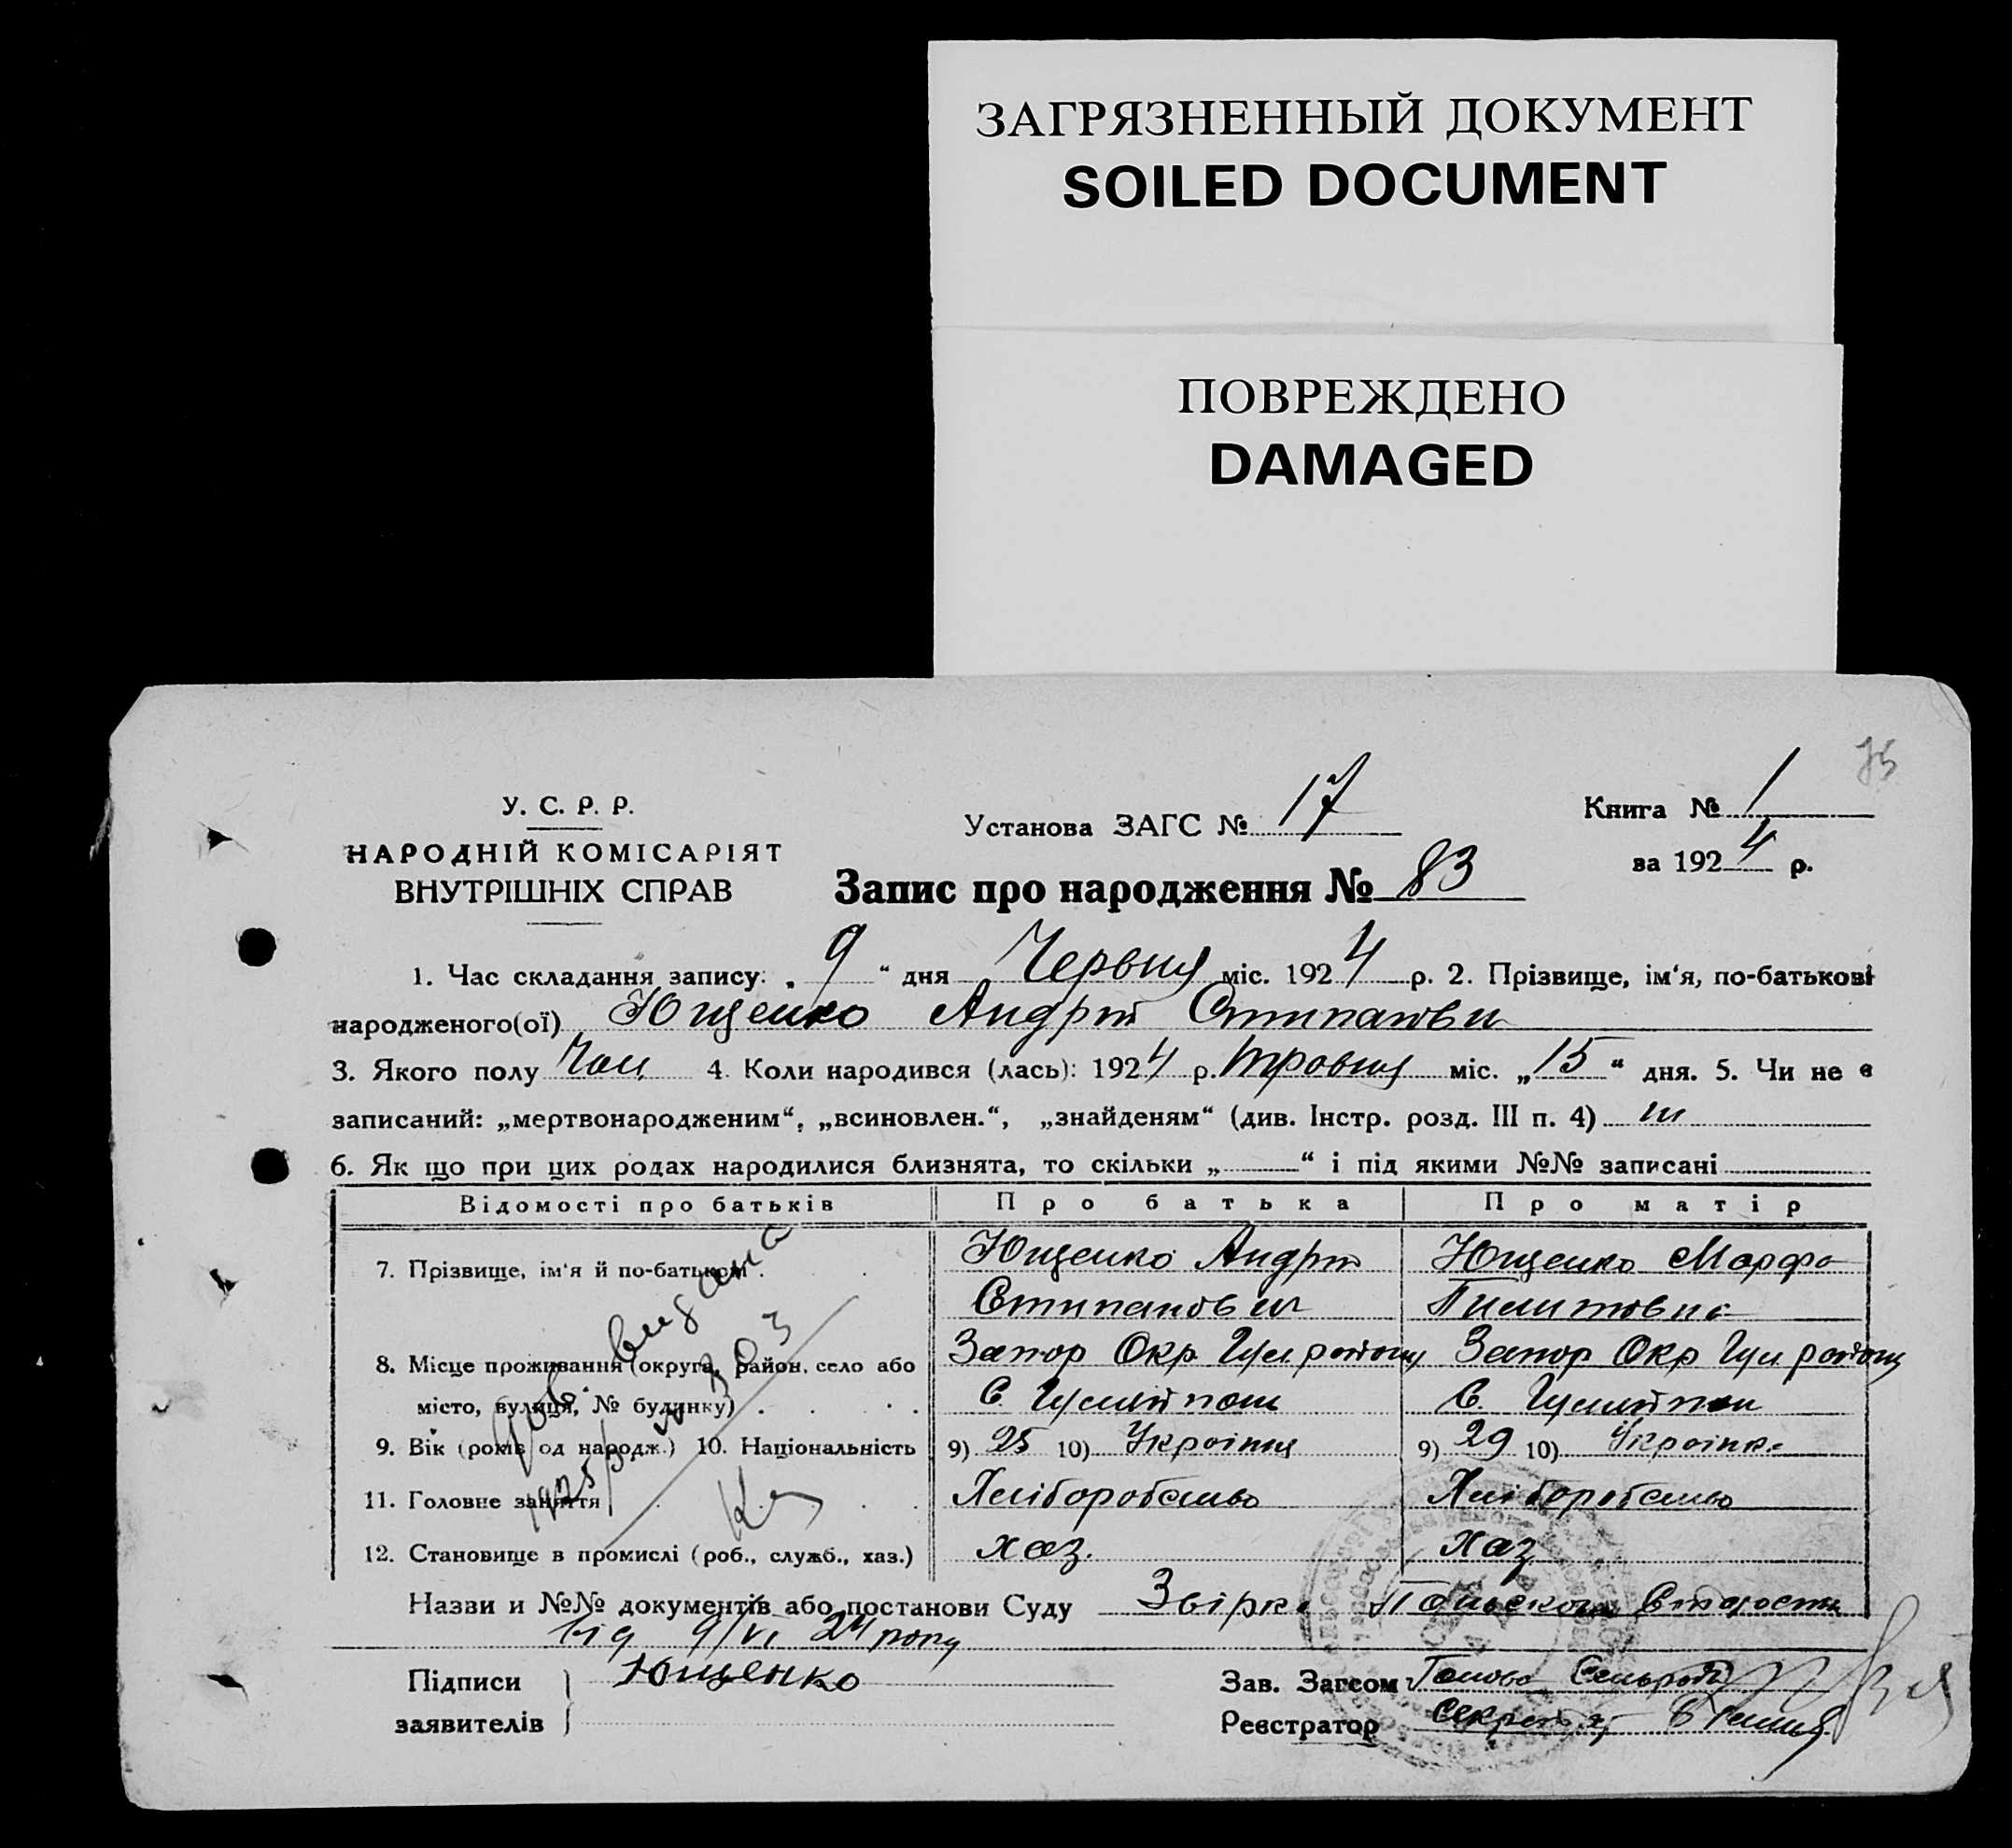 ЗАГРЯЗНЕННЫЙ ДОКУМЕНТ
SOILED DOCUMENT
ПОВРЕЖДЕНО
DAMAGED
75
У. С. Р. Р.
НАРОДНІЙ КОМІСАРІЯТ
ВНУТРІШНІХ СПРАВ
Установа ЗАГС № 17
Книга № 1
за 1924 р.
Запис про народження № 83
1. Час складання запису: „ 9 “ дня Червня міс. 1924 р. 2. Прізвище, ім'я, по-батькові
народженого(ої) Ющенко Андрій
3. Якого полу Чол. 4. Коли народився (лась): 1924 р. травня міс. „15“ дня. 5. Чи не є
записаний: „мертвонародженим“, „всиновлен.“, „знайденям“ (див. Інстр. розд. III п. 4) ні
6. Як що при цих родах народилися близнята, то скільки „ “ і під якими №№ записані
Відомості про батьків Про батька Про матір
7. Прізвище, ім'я й по-батькові Ющенко Андрій Ющенко Марфа
8. Місце проживання (округа, район, село або Запор Окр Гул району Запор Окр Гул району
місто, вулиця, № будинку) С. С.
9. Вік (років од народж.) 10. Національність 9) 25 10) 9) 29 10) Українка
11. Головне заняття Хліборобство Хліборобство
12. Становище в промислі (роб., служб., хаз.) хаз. Хаз
видана
Назви и №№ документів або постанови Суду
від 9/VI 24 року
Підписи заявителів Ющенко
Зав. Загсом Голова Сельради
Реєстратор Секретар